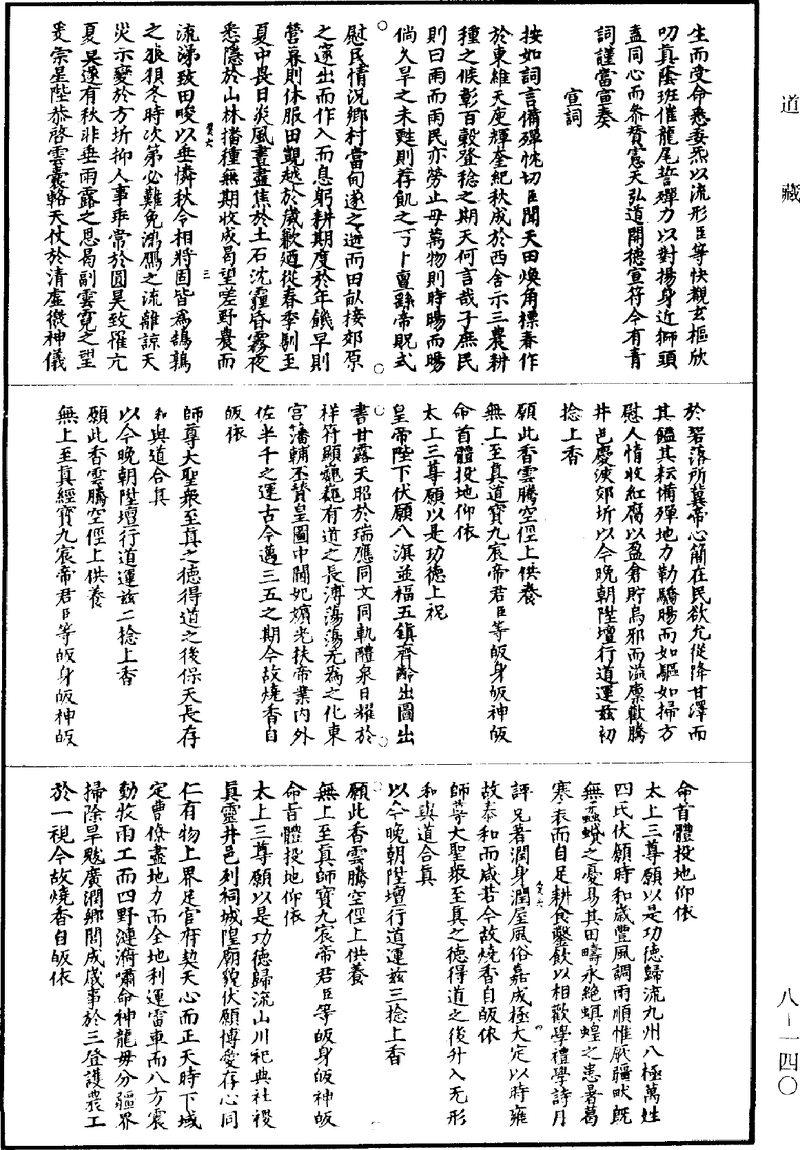 道藏
生而受命悉委炁以流形臣等快覩玄樞欣
叨真蔭班催龍尾誓殫力以對揚身近獅頭
盍同心而叅賛憲天弘道開德宣符今有青
詞謹當宣奏
宣詞
按如詞言備殫忱切臣聞天田煥角摽春作
於東維天庾輝奎紀秋成於西舍示三農耕
種之候彰百穀登稔之期天何言哉子庶民
則曰雨而雨民亦勞止毋萬物則時暘而暘
倘久旱之未甦則荐飢之
慰民情況鄉村當旬遂之遊而田畝接郊原
之遂出而作入而息躬耕期度於年饑早則
營暮則休服田觀越於歲歉廼從春季馴至
夏中畏日炎風晝盡焦於土石沈霾昏霧夜
悉隱於山林播種無期收成曷望嗟野農而
流涕致田畯以垂憐秋令相將固皆為鵠鶉
之狼狽冬時次第必難免鴻鴈之流離諒天
災示變於方圻抑人事乖常於圓昊致罹亢
夏杲遂有秋非垂雨露之恩曷副雲霓之望
爰崇星陛恭啓雲囊輅天仗於清虛微神儀
於碧落所冀帝心簡在民欲允從降甘澤而
其饁其耘備殫地力勒驕暘而如驅如掃方
慰人情收紅腐以盈倉貯烏邪而溢廪歡騰
井邑慶浹郊圻以今晚朝陞壇行道運兹初
捻上香
願此香雲騰空徑上供養
無上至真道寳九宸帝君臣等皈身皈神皈
命首體投地仰依
太上三尊願以是功德上祝
皇帝陛下伏願八溟並福五鎮齊齡出圖出
書甘露天昭於瑞應同文同軌醴泉日耀於
祥符顯巍巍有道之長溥蕩蕩无為之化東
宮藩輔丕賛皇圖中闈妃嬪光扶帝業内外
佐半千之運古今邁三五之期今故燒香自
皈依
師尊大聖衆至真之德得道之後保天長存
和與道合真
以今晚朝陞壇行道運兹二捻上香
願此香雲騰空徑上供養
無上至真經寳九宸帝君臣等皈身皈神皈
命首體投地仰依
太上三尊願以是功德歸流九州八極萬姓
四民伏願時和歲豐風調雨順惟厥疆畎既
無蟊蠈之憂易其田疇永絶螟蝗之患暑葛
寒衣而自足耕食鑿飲以相歡學禮學詩月
評兄著潤身潤屋風俗嘉成極大定以時雍
故泰和而咸若今故燒香自皈依
師尊大聖衆至真之德得道之後升入无形
和與道合真
以今晚朝陞壇行道運兹三捻上香
願此香雲騰空徑上供養
無上至真師寳九宸帝君臣等皈身皈神皈
命首體投地仰依
太上三尊願以是功德歸流山川祀典社禝
真靈井邑列祠城隍廟貌伏願博愛存心同
仁有物上界足官府契天心而正天時下域
定曹僚盡地力而全地利運雷車而八方震
動牧雨工而四野漣漪嘯命神龍毋分疆界
掃除旱魃廣潤鄉閭成歲事於三登護農工
於一視今故燒香自皈依
八－一四〇